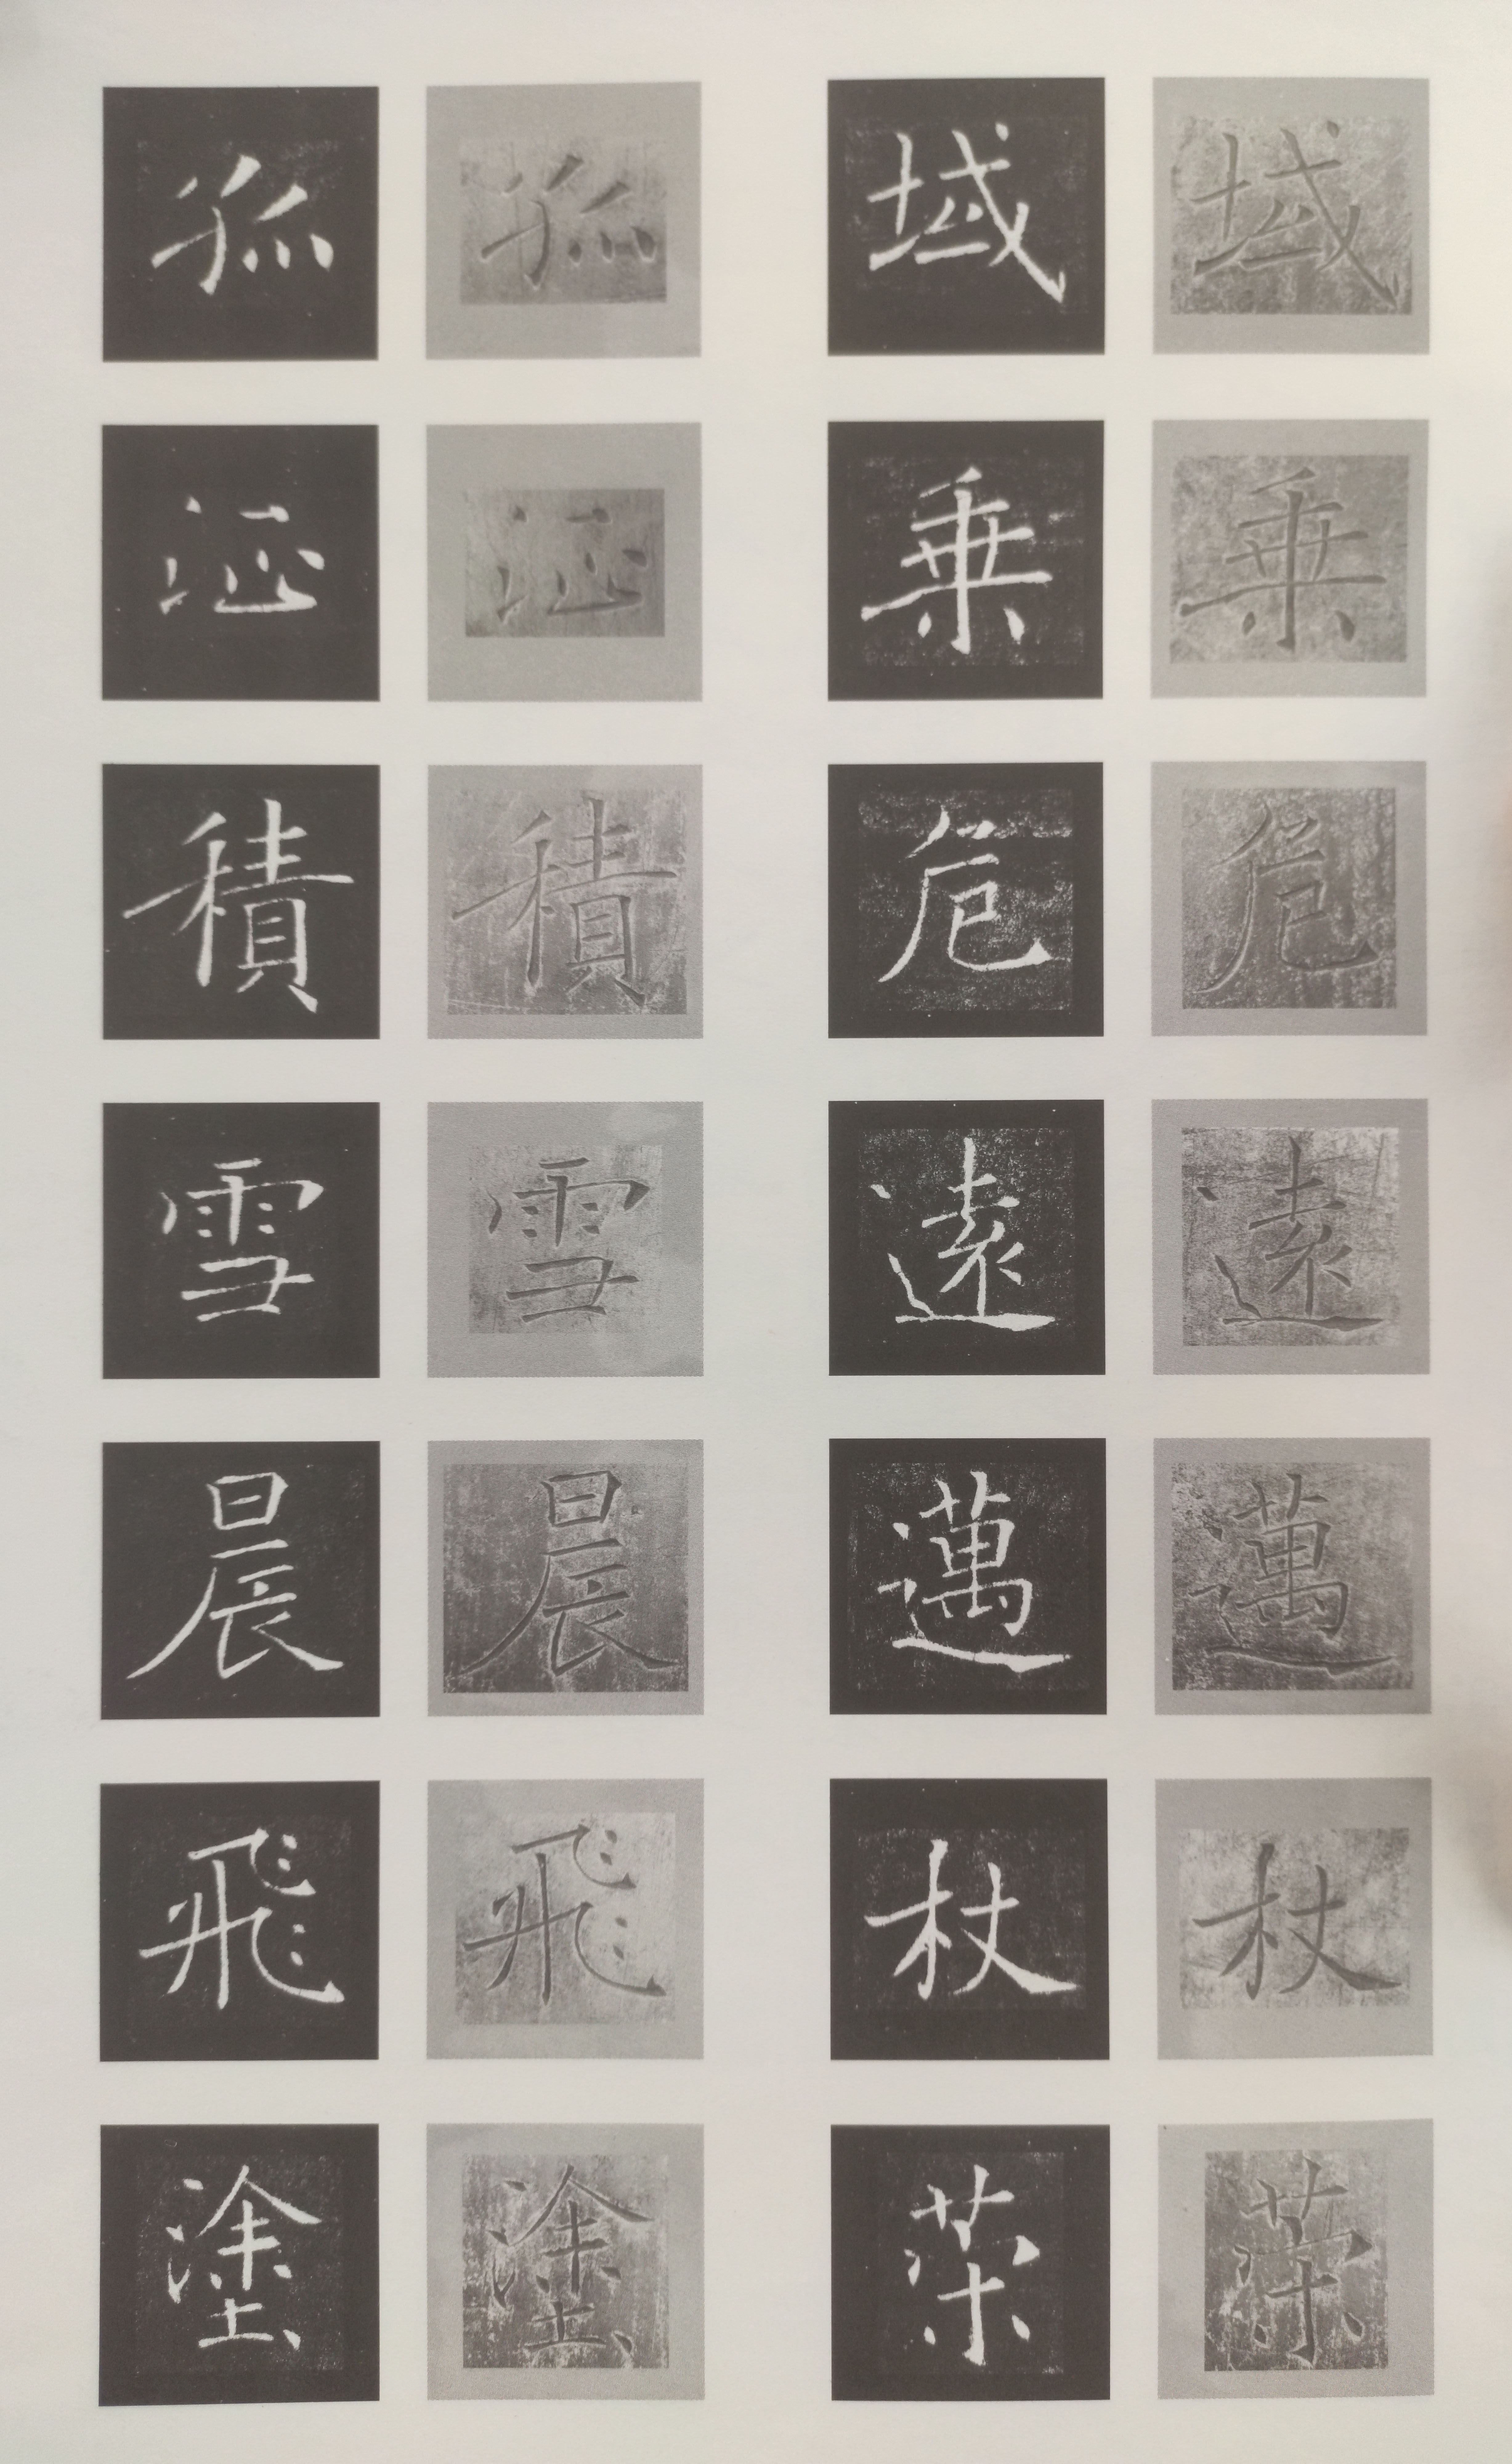 域乘危遠邁杖策
域乘危遠邁杖策
孤征積雪晨飛塗
孤征積雪晨飛塗